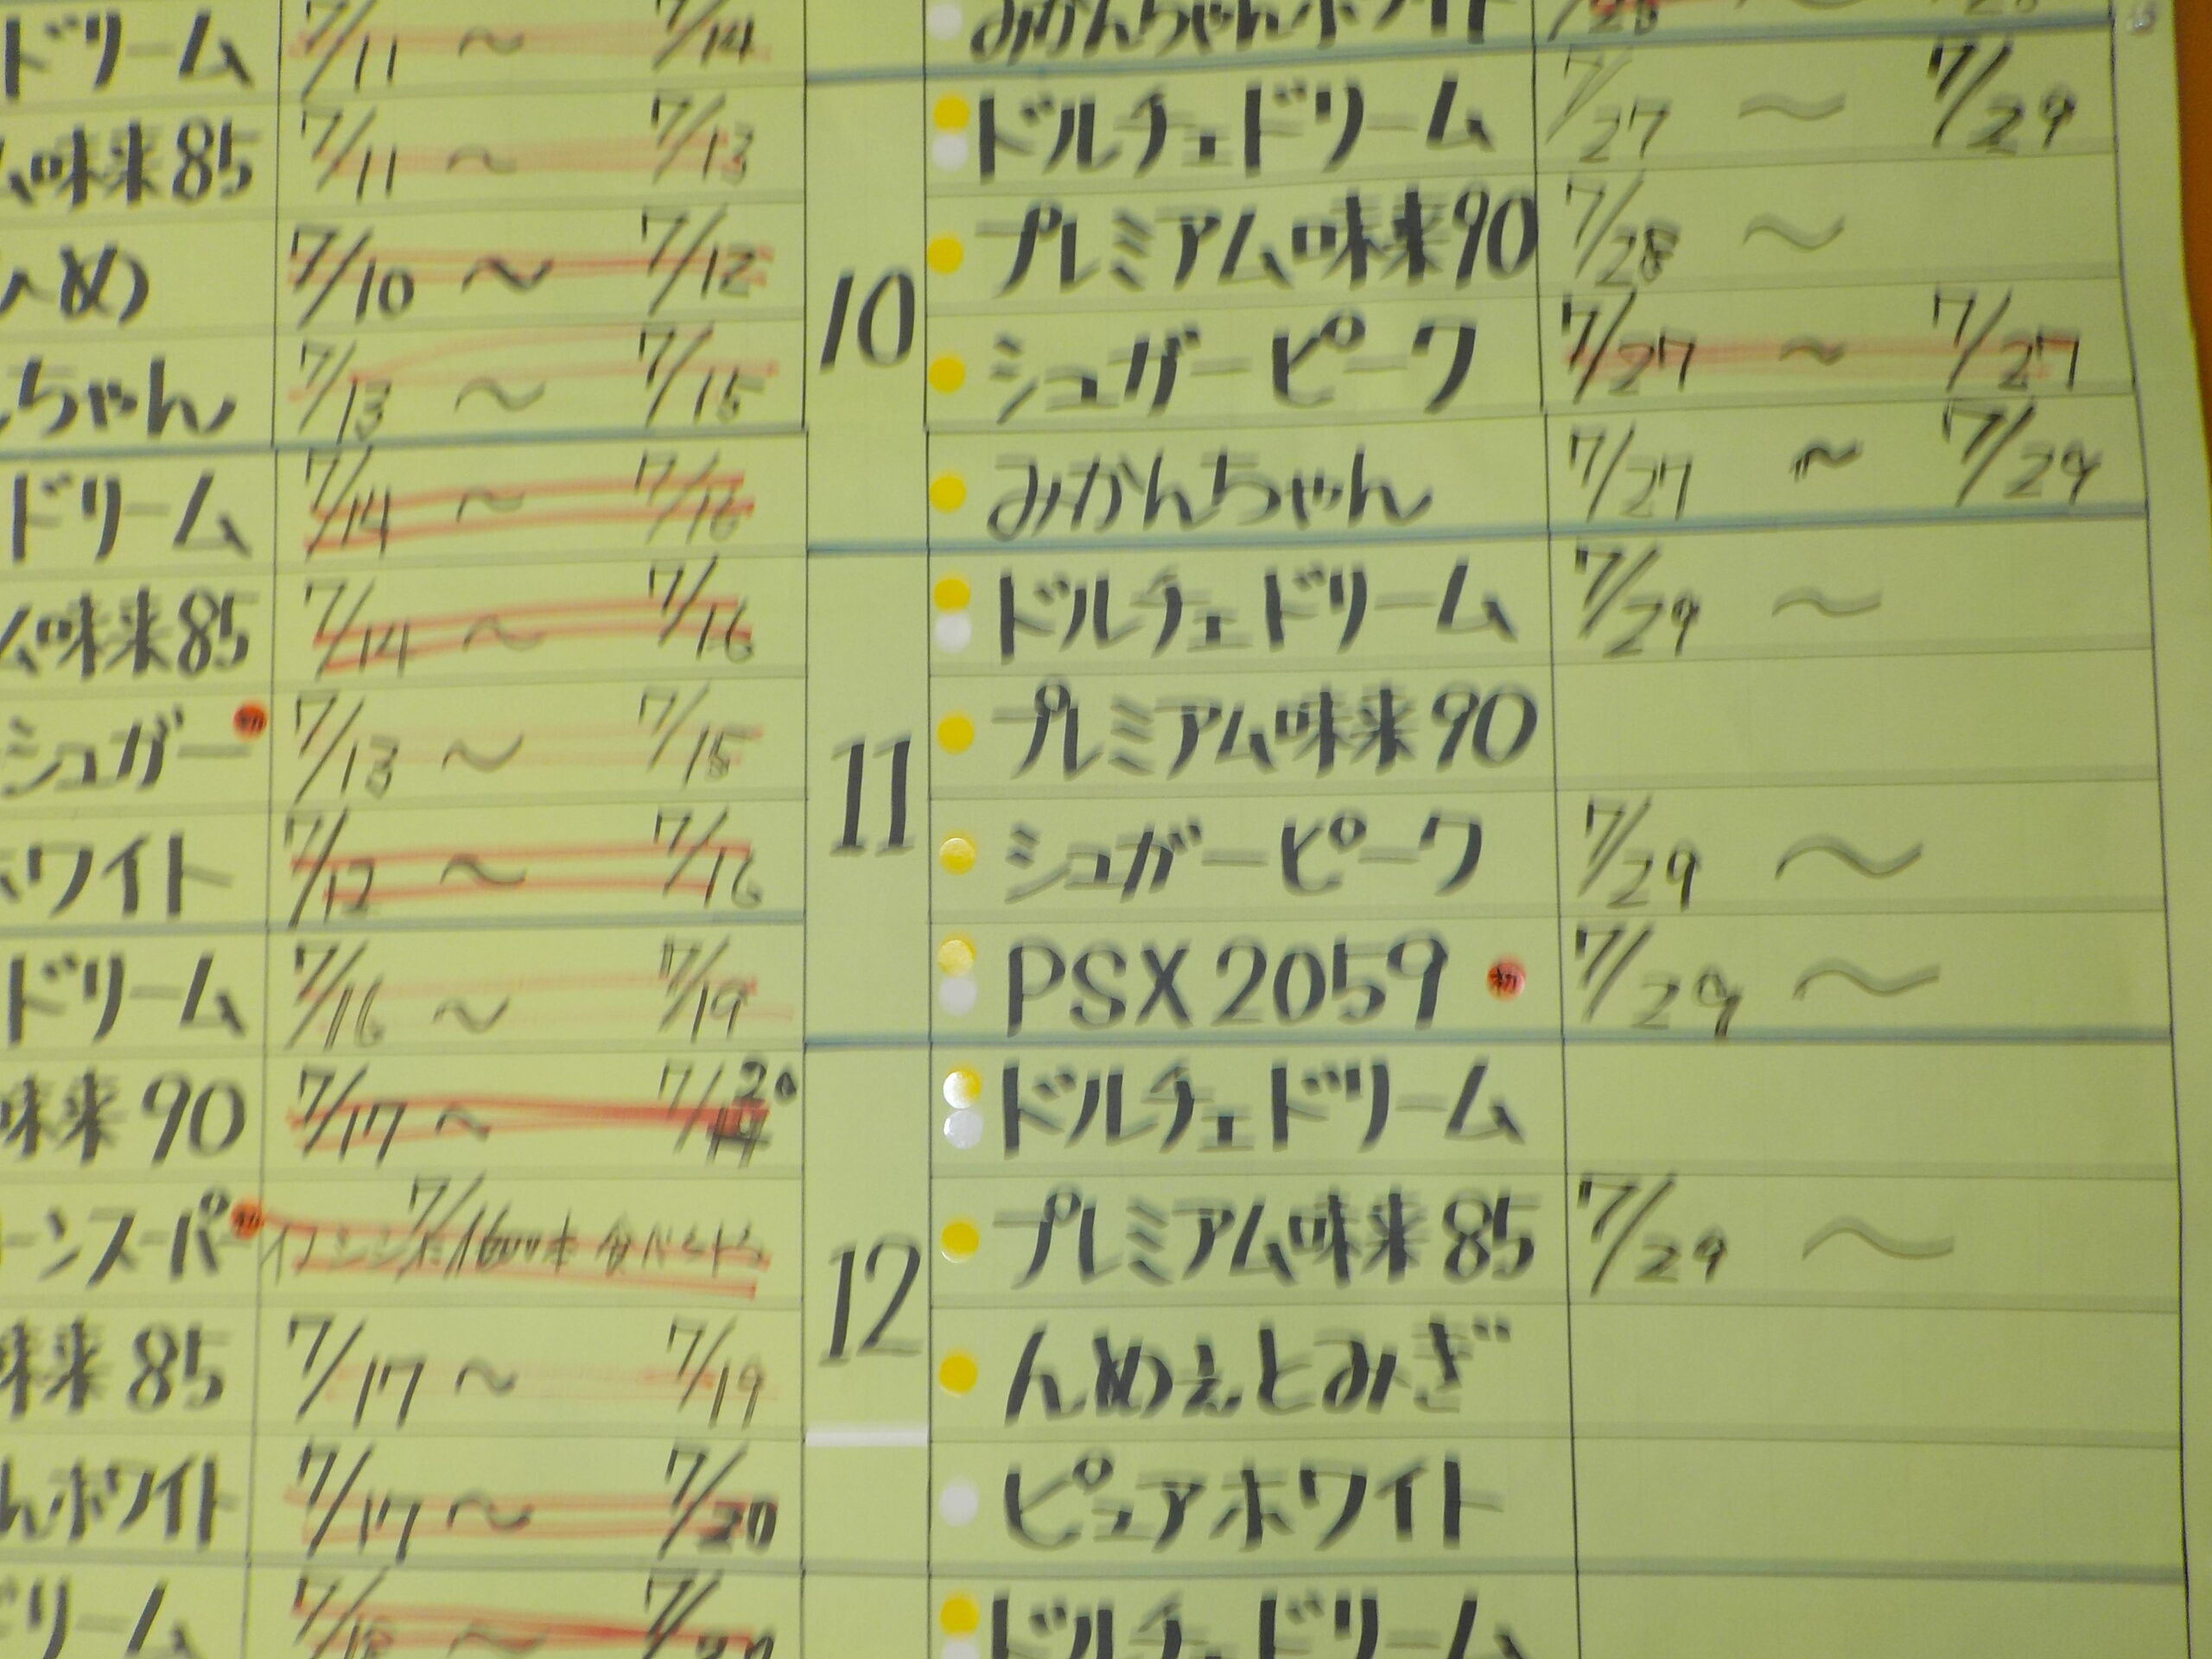 ドリーム 7/11 ~ 7/14
味来85 7/11 ~ 7/13
ひめ 7/10 ~ 7/12
ちゃん 7/13 ~ 7/15
ドリーム 7/14 ~ 7/16
ム味来85 7/14 ~ 7/16
シュガー 初 7/13 ~ 7/15
ホワイト 7/12 ~ 7/16
ドリーム 7/16 ~ 7/19
味来90 7/17 ~ 7/20
ーンスーパー 初 7/16
味来85 7/17 ~ 7/19
んホワイト 7/17 ~ 7/20
ドリーム 7/18 ~ 7/20
みかんちゃんホワイト
10
ドルチェドリーム 7/27 ~ 7/29
プレミアム味来90 7/28 ~
シュガーピーク 7/27 ~ 7/27
みかんちゃん 7/27 ~ 7/29
11
ドルチェドリーム 7/29 ~
プレミアム味来90
シュガーピーク 7/29 ~
PSX2059 初 7/29 ~
12
ドルチェドリーム
プレミアム味来85 7/29 ~
んめぇとみぎ
ピュアホワイト
ドルチェドリーム